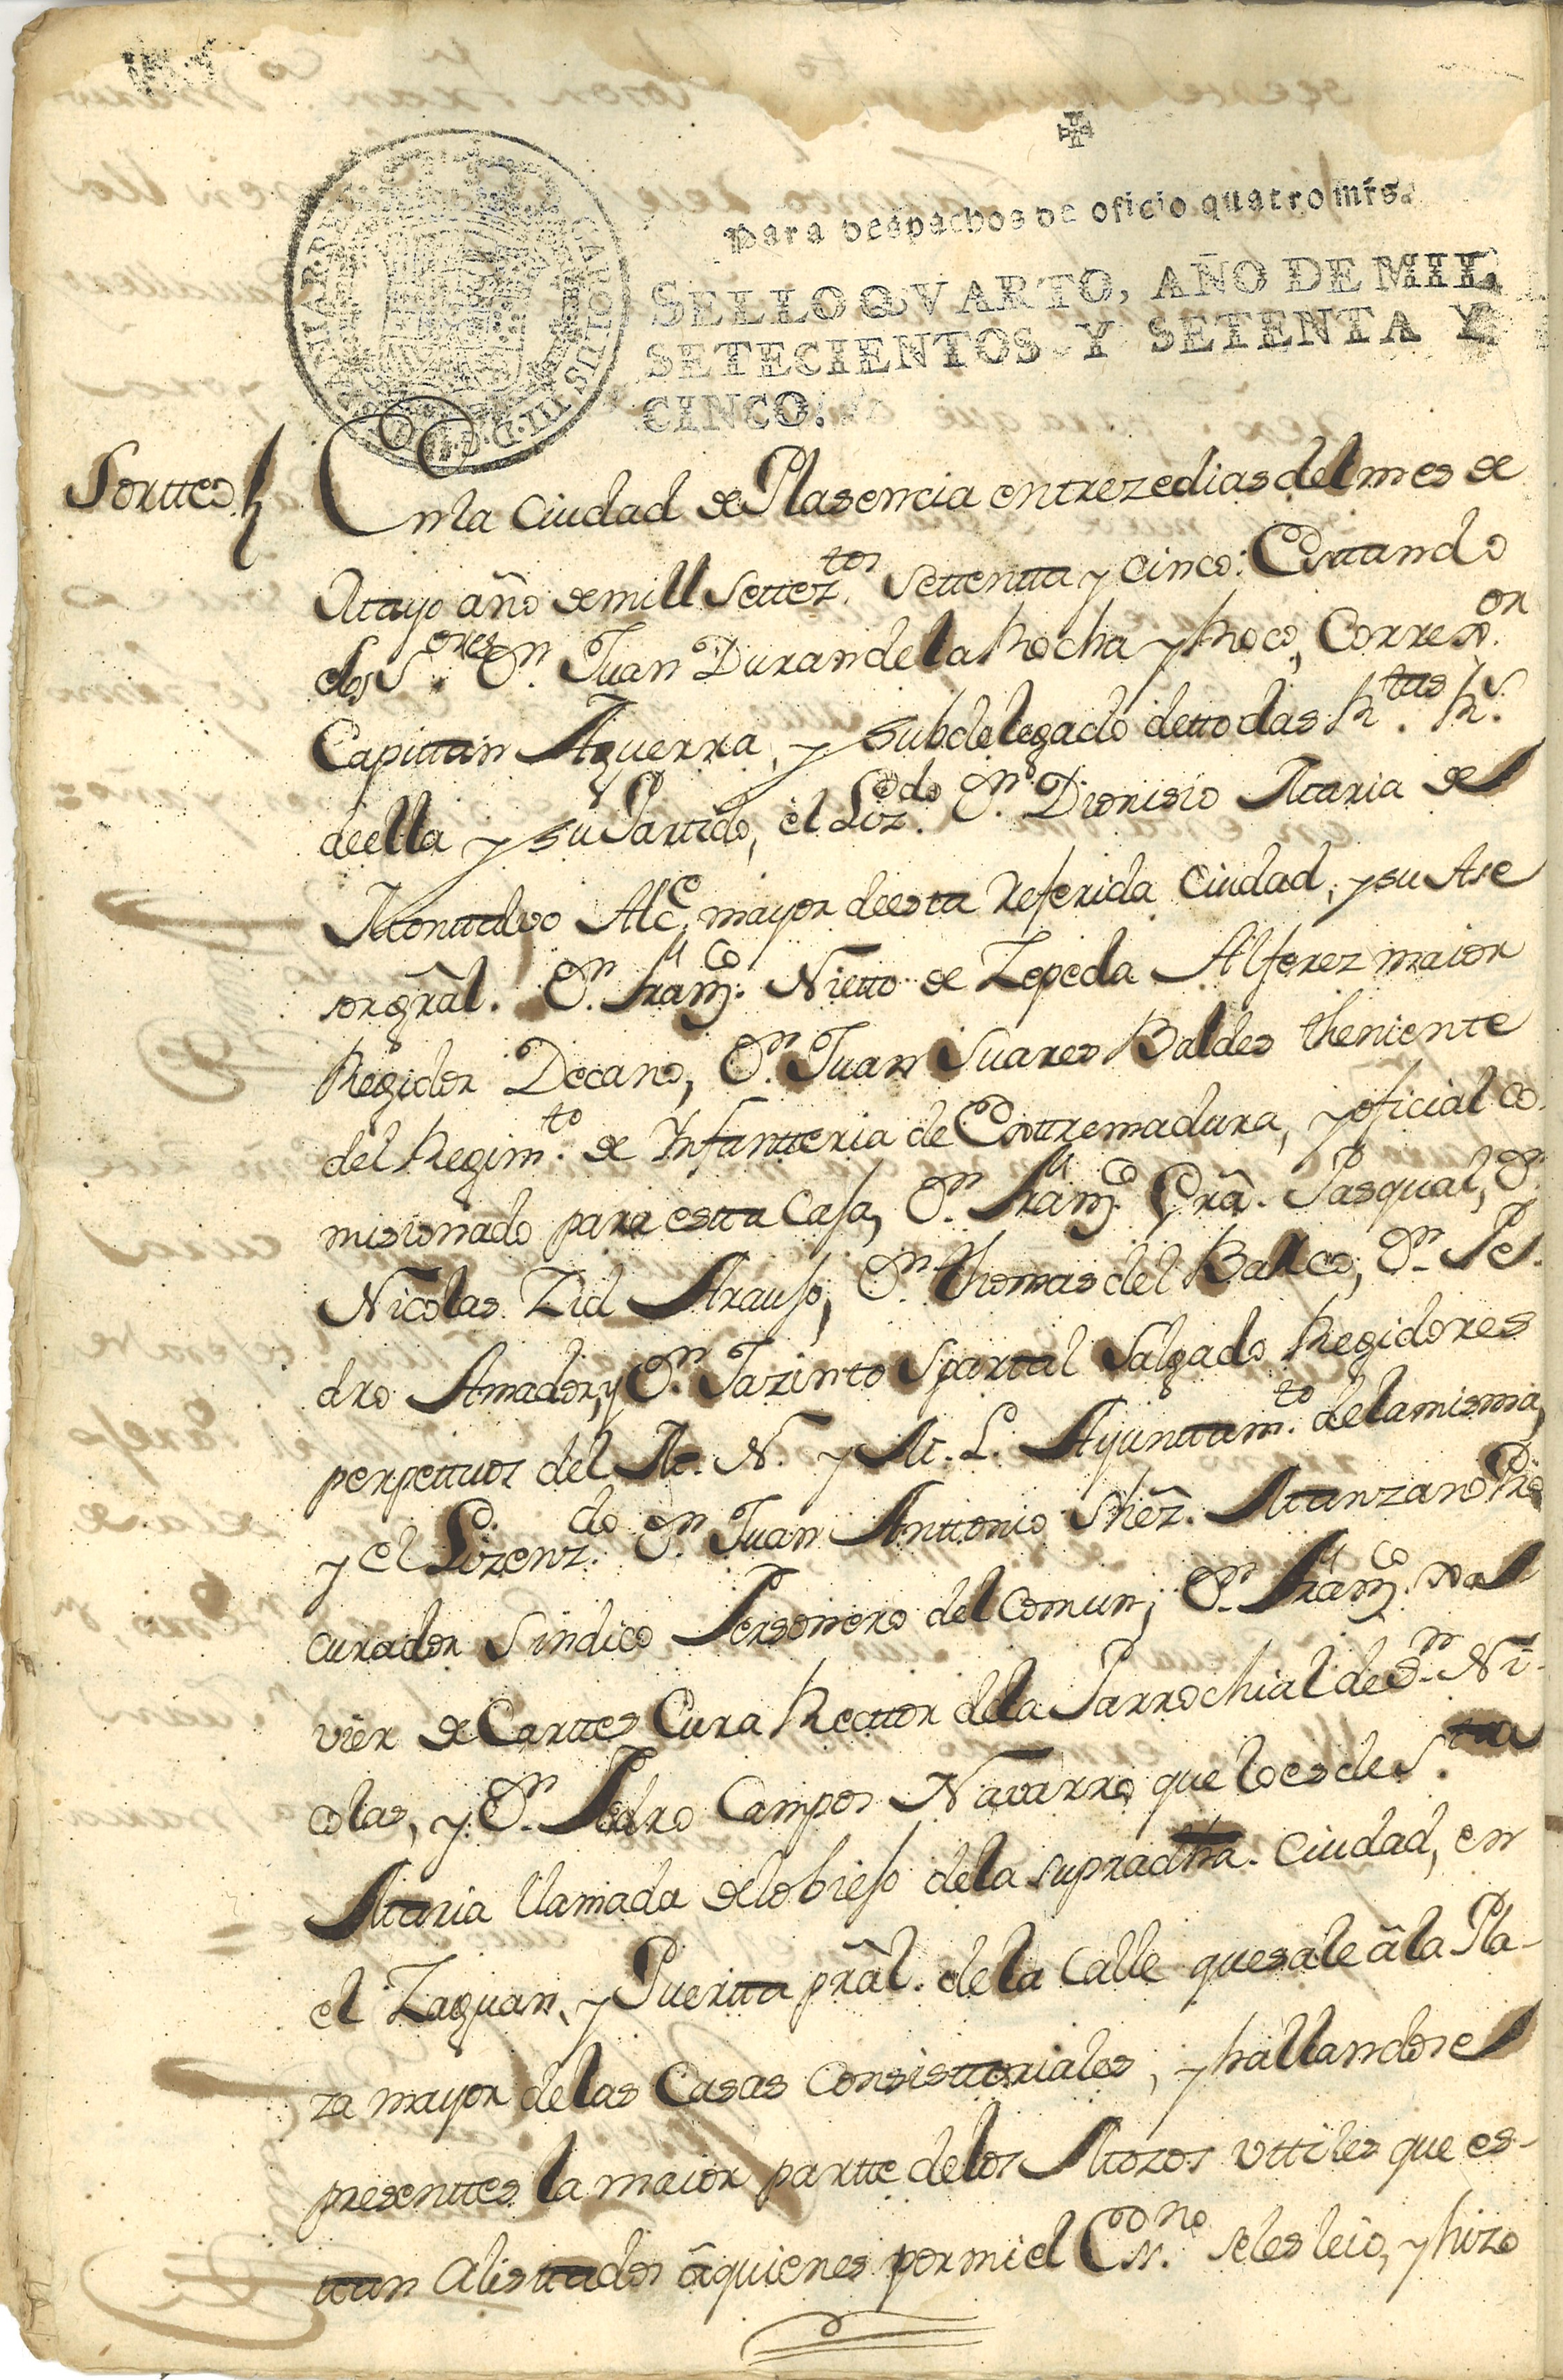 Para despachos de oficio quatro mrs.
SELLO QVARTO, AÑO DE MIL
SETECIENTOS Y SETENTA Y
CINCO.
CAROLUS III D. G.
Sortteo
En la Ciudad de Plasencia en treze dias del mes de
Mayo año de mill settez.tos settentta y cinco: Esttando
los S.ores D.n Juan Duran de la Rocha y Roco, Correx.or
Capittan Aguerra, y subdelegado de ttodas R.tas R.s
de ella y su Partido, el Liz.do D.n Dionisio Maria de
Monttalvo Alc.e mayor de esta referida Ciudad, y su Ase
sor gral. D.n Fran.co Nietto de Zepeda Alferez maior
Regidor Decano, D.n Juan Suares Baldes theniente
del Regim.to de Ynfantteria de Esttremadura, y oficial co-
misionado para estta Casa, D.n Fran.co Gra. Pasqual, D.n
Nicolas Zid Araujo, D.n Thomas del Barco, D.n Pe-
dro Amador, y D.n Jazinto Sparttal Salgado Regidores
perpettuos del M. N. y M. L. Ayunttam.to de la misma,
y el Lizenz.do D.n Juan Anttonio Shez. Manzano Pro
curador Sindico Personero del Comun, D.n Fran.co Xa
vier de Carttes Cura Recttor de la Parrochial de S.n Ni-
colas, y D.n Pedro Campos Navarro que lo es de S.tta
Maria llamada de lobieso de la supradha. Ciudad, en
el Zaguan, y Puertta pral. de la Calle que sale â la Pla-
za mayor de las Casas Consisttoriales, y hallandose
presenttes la maior partte de los Mozos uttiles que es-
ttan alisttados â quienes por mi el Es.no se les leio, y hizo